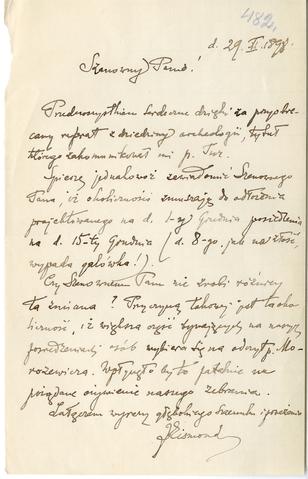 482.
d. 29. XI. 1898.
Szanowny Panie!
Przedewszystkiem serdeczne dzięki za przyobie-
cany referat z dziedziny archeologii, tytuł
którego zakomunikował mi p. Tur.
Spieszę jednakowoż zawiadomić Szanownego
Pana, iż okoliczności zmuszają do odłożenia
projektowanego na d. 1-szy Grudnia posiedzenia
na d. 15-ty Grudnia (d. 8-go, jak na złość,
wypada galówka!).
Czy Szanownemu Panu nie zrobi różnicy
ta zmiana? Przyczyną takowej jest ta oko-
liczność, iż większa część bywających na naszych
posiedzeniach osób wybiera się na odczyt p. Mo-
rozewicza. Wpłynęłoby to fatalnie na
pożądane ożywienie naszego zebrania.
Załączam wyrazy głębokiego szacunku i poważania
JEismond